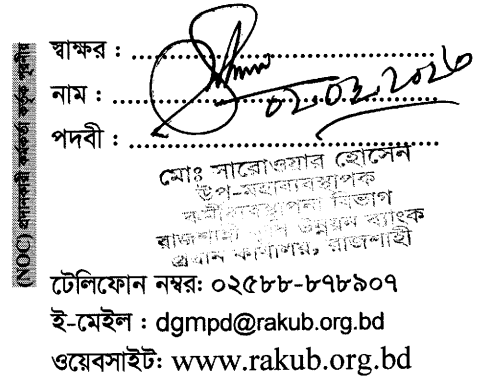 (NOC) প্রদানকারী কর্মকর্তা কর্তৃক পূরণীয়
স্বাক্ষর :
02.03.2026
নাম :
পদবী :
মোঃ সারোওয়ার হোসেন
উপ-মহাব্যবস্থাপক
বিভাগ
রাজশাহী কৃষি উন্নয়ন ব্যাংক
প্রধান কার্যালয়, রাজশাহী
টেলিফোন নম্বর: ০২৫৮৮-৮৭৮৯০৭
ই-মেইল : dgmpd@rakub.org.bd
ওয়েবসাইট: www.rakub.org.bd